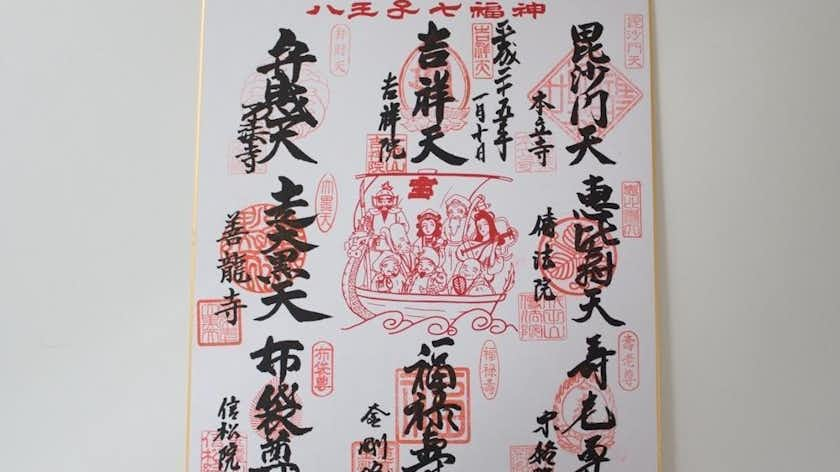 八王子七福神
毘沙門天
毘沙門天
本立寺
平成二十五年
一月十日
吉祥天
吉祥天
吉祥院
弁財天
弁財天
恵比寿天
傳法院
宝
大黒天
走大黒天
善龍寺
壽老尊
寿老尊
守
福禄寿
福禄寿
金剛
布袋尊
布袋尊
信松院